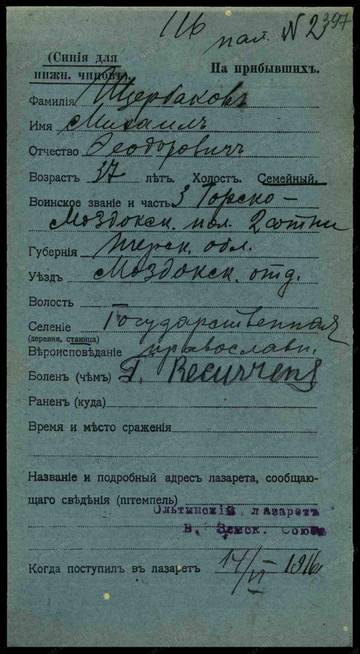 116
пал. № 2
397
(Синія для
нижн. чиновъ).
На прибывшихъ.
Фамилія Щербаковъ
Имя Михаилъ
Отчество Ѳеодоровичъ
Возрастъ 37 лѣтъ. Холост. Семейный.
Воинское званіе и часть 3 Горско-
Моздокск. пол. 2 сотни
Губернія Терск. обл.
Уѣздъ Моздокск. отд.
Волость
Селеніе Государственная
(деревня, станица)
Вѣроисповѣданіе православн.
Боленъ (чѣмъ) F. Recurrens
Раненъ (куда)
Время и мѣсто сраженія
Названіе и подробный адресъ лазарета, сообщаю-
щаго свѣдѣнія (штемпель)
Ольтинскій лазаретъ
В. Земск. Союза
Когда поступилъ въ лазаретъ 14/VI 1916